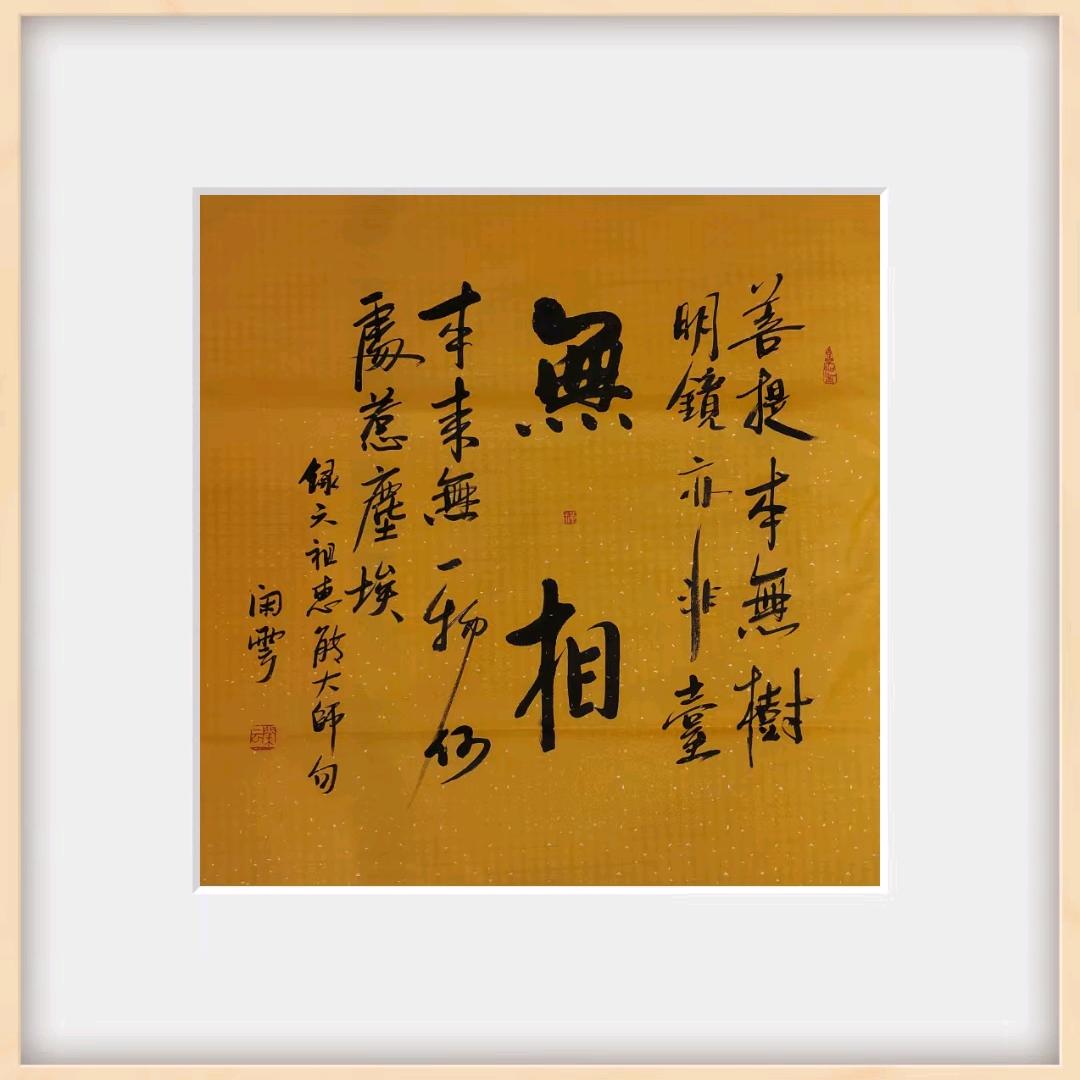 菩提本無樹
明鏡亦非臺
無相
本来無一物何
處惹塵埃
録六祖惠能大師句
闲雲